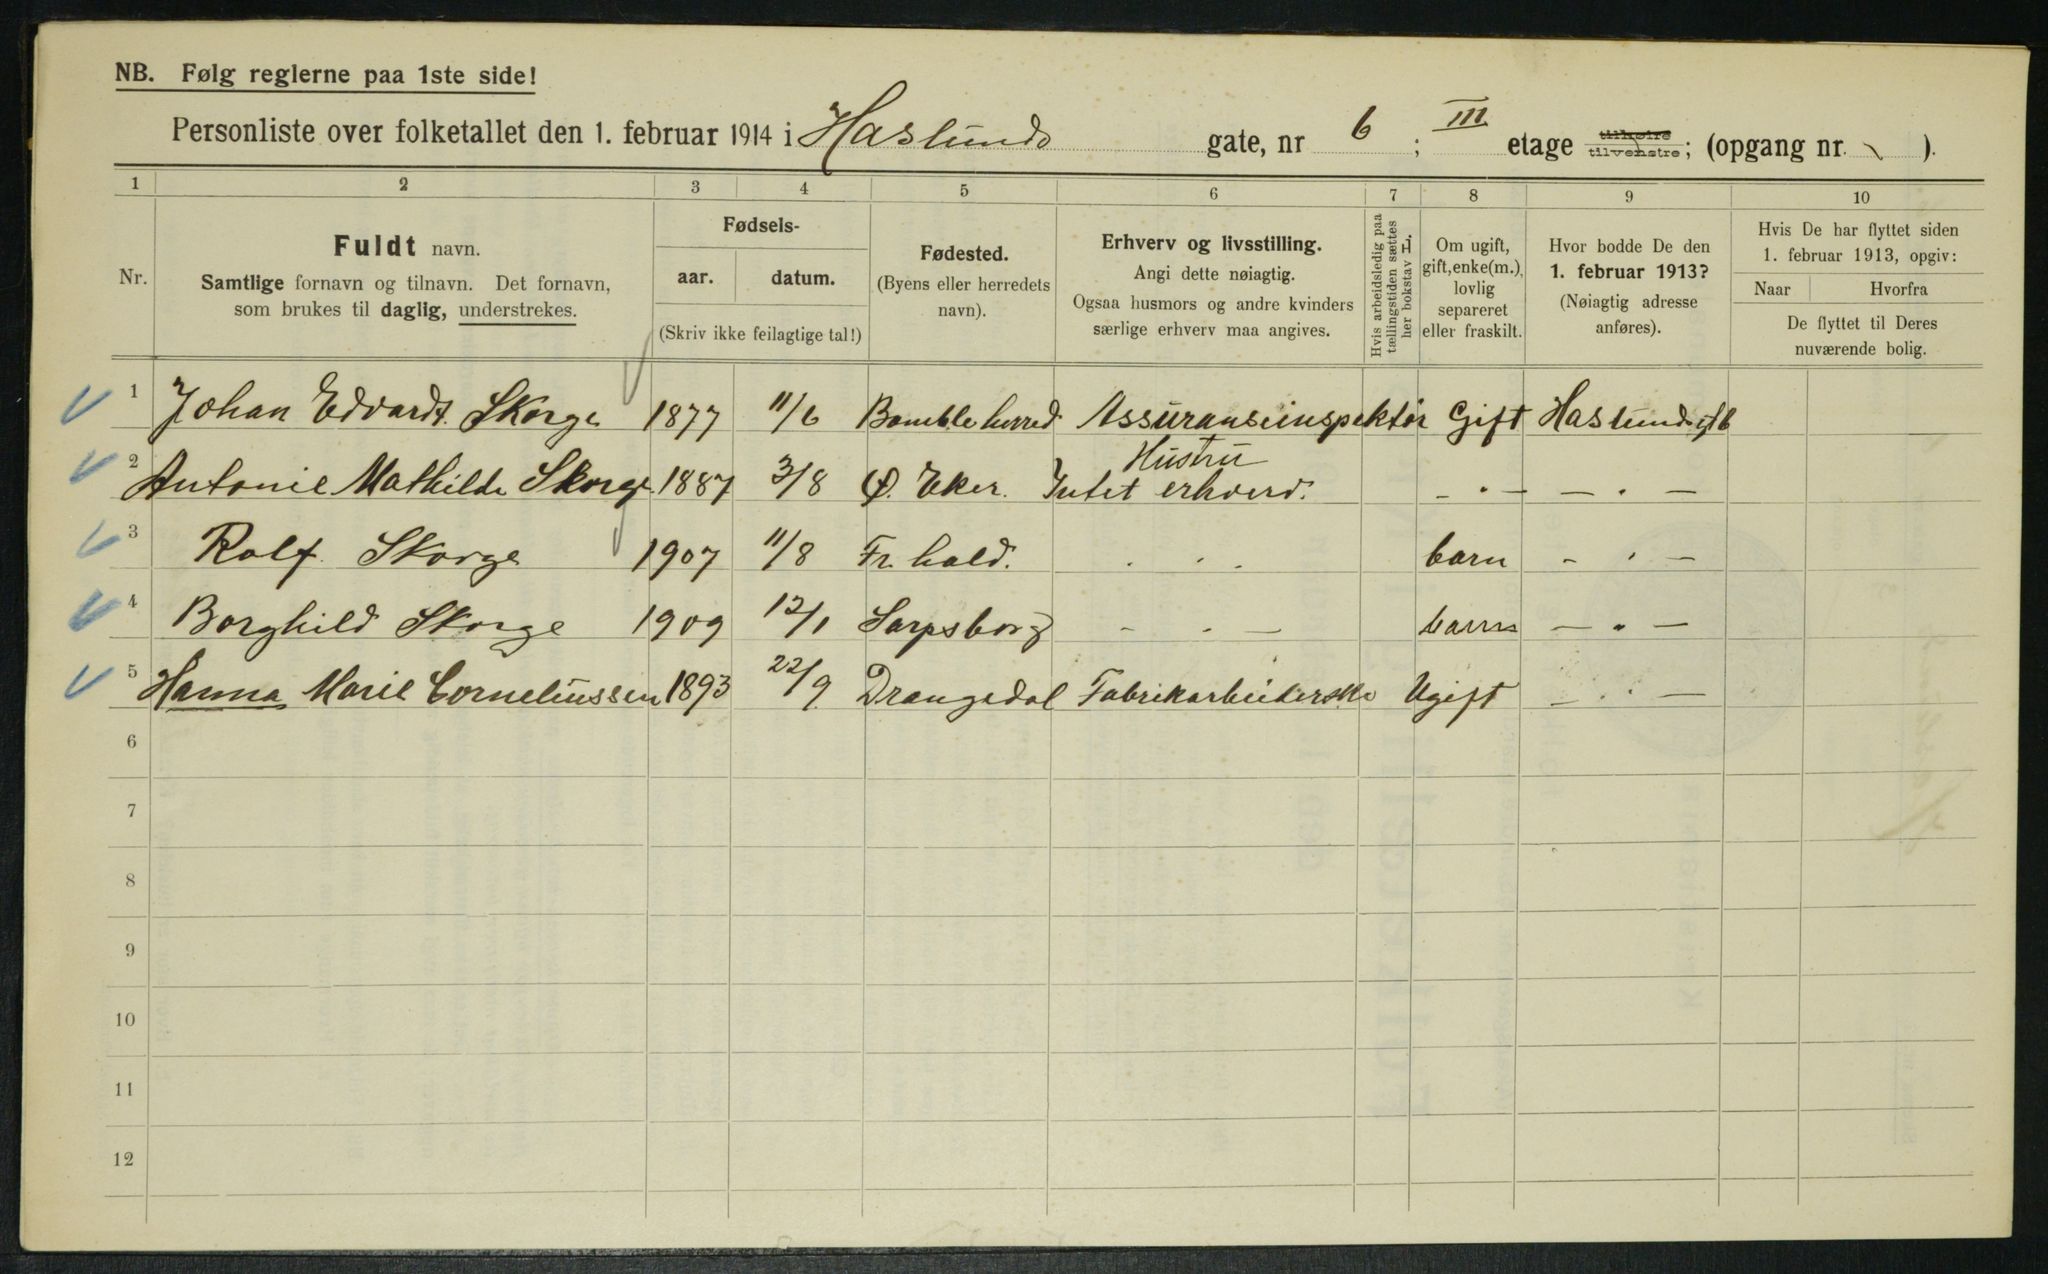 NB. Følg reglerne paa 1ste side!
Personliste over folketallet den 1. februar 1914 i Haslunds gate, nr 6; III etage tilhøire tilvenstre; (opgang nr. ).
1 2 3 4 5 6 7 8 9 10
Nr. Fuldt navn. Samtlige fornavn og tilnavn. Det fornavn, som brukes til daglig, understrekes.
Fødsels- aar. datum. (Skriv ikke feilagtige tal!)
Fødested. (Byens eller herredets navn).
Erhverv og livsstilling. Angi dette nøiagtig. Ogsaa husmors og andre kvinders særlige erhverv maa angives.
Hvis arbeidsledig paa tællingstiden sættes her bokstav L.
Om ugift, gift, enke(m.), lovlig separeret eller fraskilt.
Hvor bodde De den 1. februar 1913? (Nøiagtig adresse anføres).
Hvis De har flyttet siden 1. februar 1913, opgiv: Naar Hvorfra De flyttet til Deres nuværende bolig.
1 Johan Edvardt. Skorge 1877 11/6 Bamble herred Assuranseinspektør Gift Haslundsgt 6
Hustru
2 Antonie Mathilde Skorge 1887 3/8 Ø. Eker. Intet erhverv. - " - - " -
3 Rolf Skorge 1907 11/8 Fr. hald. " " " barn - " -
4 Borghild Skorge 1909 12/1 Sarpsborg - " - barn - " -
5 Hanna Marie Corneliussen 1893 22/9 Drangedal Fabrikarbeiderske Ugift - " -
6
7
8
9
10
11
12